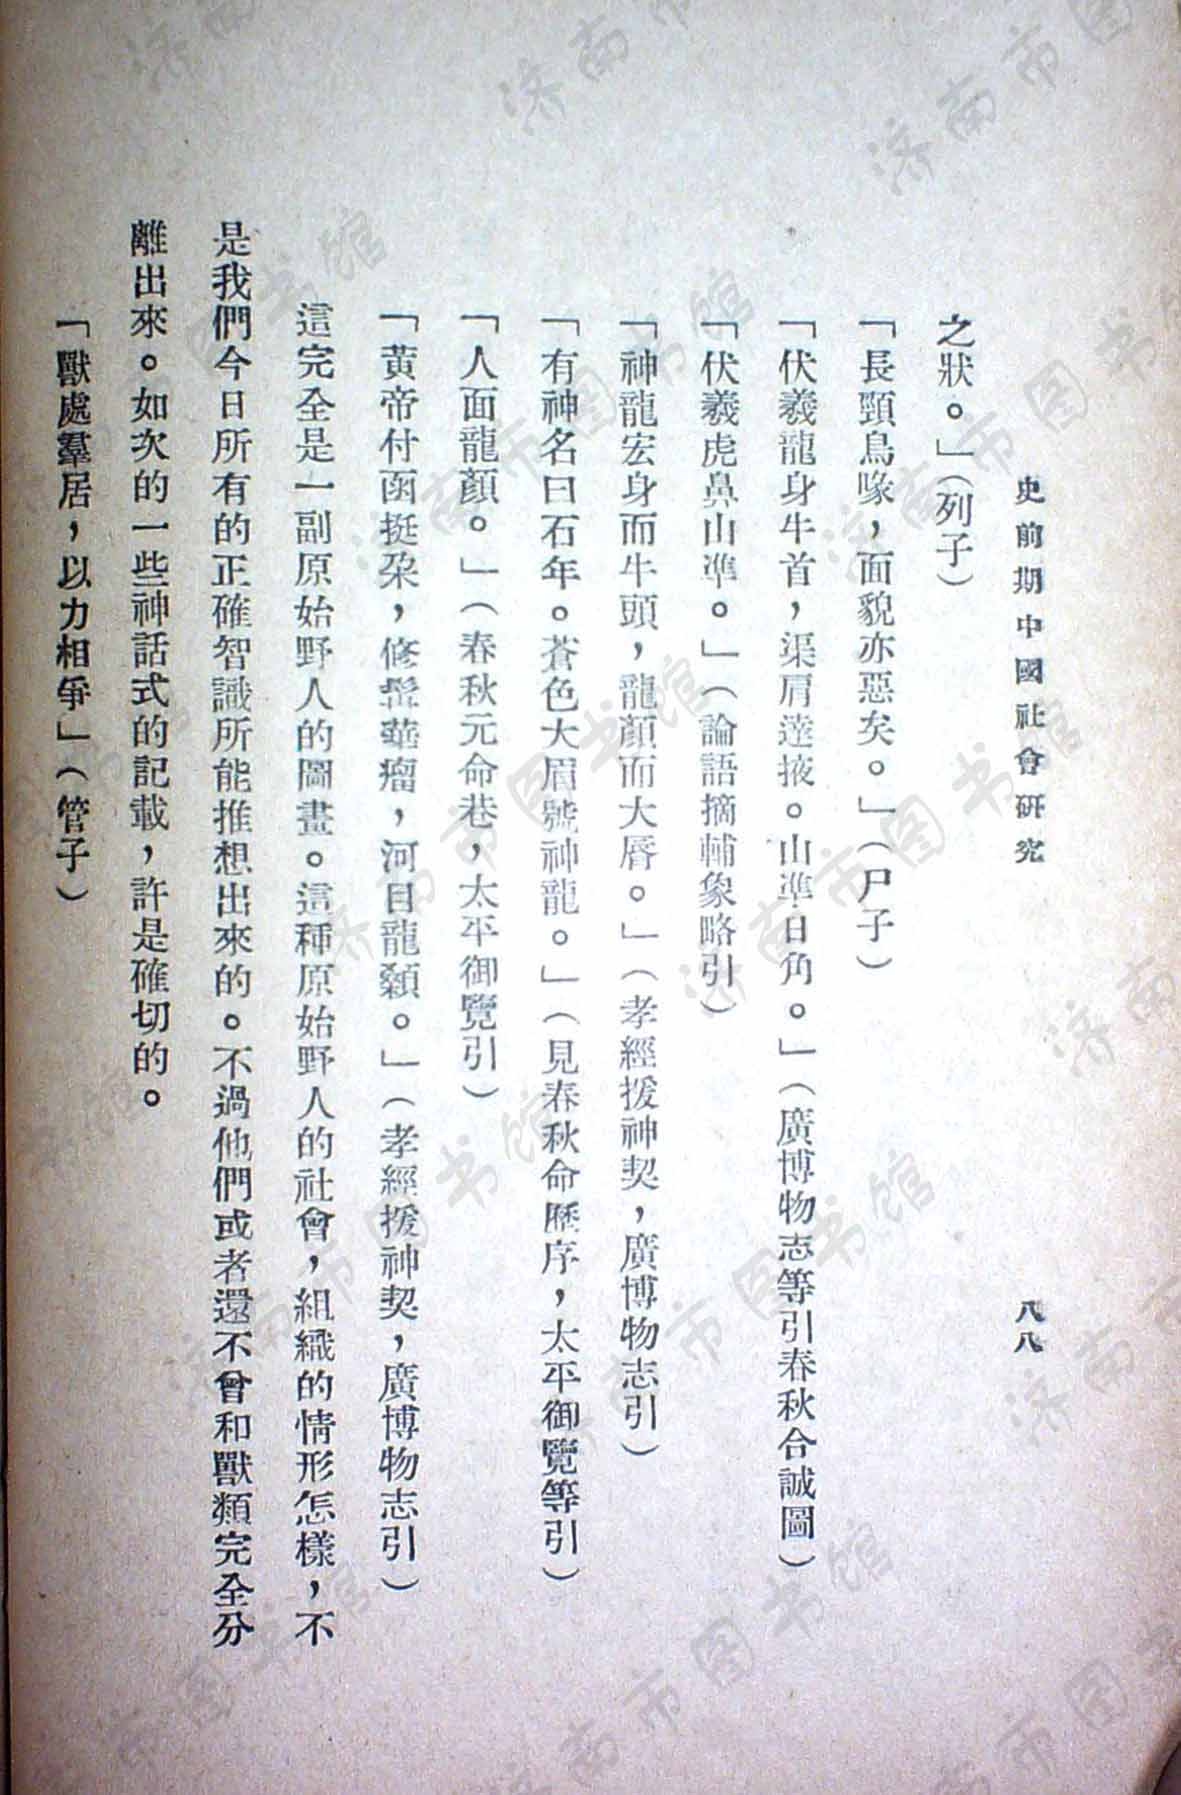 史前期中國社會研究
八八
之狀。」（列子）
「長頸鳥喙，面貌亦惡矣。」（尸子）
「伏羲龍身牛首，渠肩達掖。山準日角。」（廣博物志等引春秋合誠圖）
「伏羲虎鼻山準。」（論語摘輔象略引）
「神龍宏身而牛頭，龍顏而大唇。」（孝經援神契，廣博物志引）
「有神名曰石年。蒼色大眉號神龍。」（見春秋命歷序，太平御覽等引）
「人面龍顏。」（春秋元命巷，太平御覽引）
「黃帝付函挺朶，修髻華瘤，河目龍顙。」（孝經援神契，廣博物志引）
這完全是一副原始野人的圖畫。這種原始野人的社會，組織的情形怎樣，不
是我們今日所有的正確智識所能推想出來的。不過他們或者還不曾和獸類完全分
離出來。如次的一些神話式的記載，許是確切的。
「獸處羣居，以力相爭」（管子）
济南市图书馆